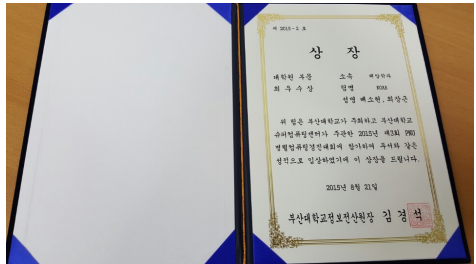 제 2015-2 호
상 장
대학원 부문 소속 해양학과
최 우 수 상 팀명
성명 배소현, 최장근
위 팀은 부산대학교가 주최하고 부산대학교
슈퍼컴퓨팅센터가 주관한 2015년 제3회 PNU
병렬컴퓨팅경진대회에 참가하여 우와 같은
성적으로 입상하였기에 이 상장을 드립니다.
2015년 8월 21일
부산대학교정보전산원장 김 경 석